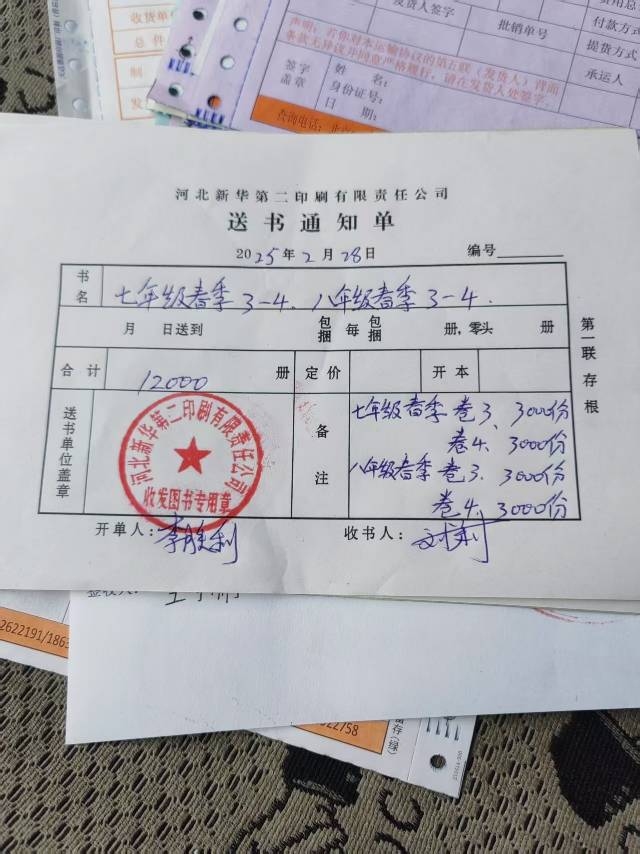 收货单
总件
制
发
发货人签字
批销单号
付款方式
提货方式
承运人
声明：若你对本运输协议的第五联（发货人）背面
条款无异议并同意严格履行，请在发货人处签字。
签字
盖章
姓名：
身份证号：
日期：
查询电话：北
河北新华第二印刷有限责任公司
送书通知单
2025年2月28日
编号
书名 七年级春季3-4、八年级春季3-4.
月 日送到 包捆 每 包捆 册，零头 册
合计 12000 册 定价 开本
送书单位盖章
河北新华第二印刷有限责任公司
收发图书专用章
备注
七年级春季 卷3、3000份
卷4、3000份
八年级春季 卷3、3000份
卷4、3000份
开单人：李胜利
收书人：
第一联存根
签收人：
2622191/1863
22758
存(绿)